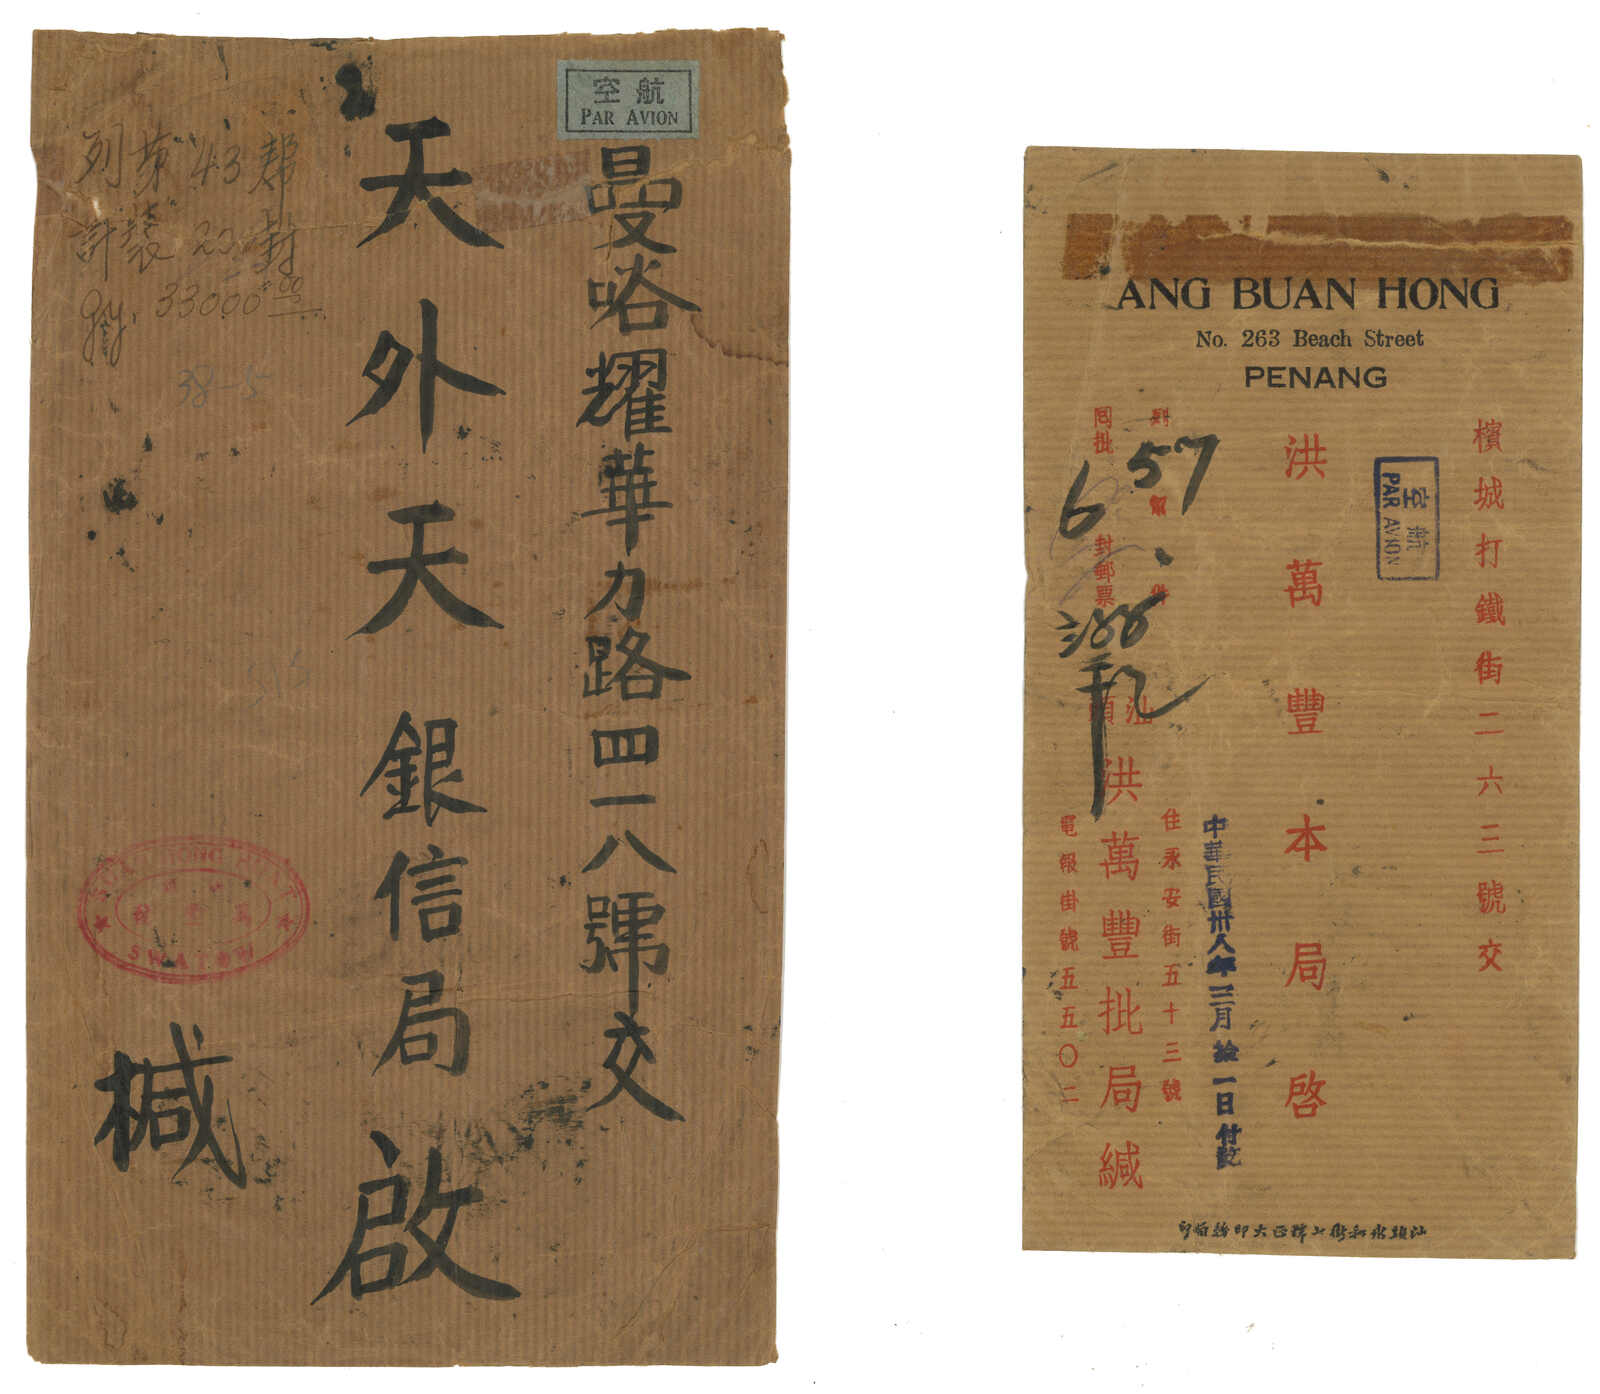 航空
PAR AVION
曼哈耀華力路四一八號交
天外天銀信局啟
列第43帮
計裝20封
33000.00
38-5
SWATOW
椷
ANG BUAN HONG
No. 263 Beach Street
PENANG
檳城打鐵街二六三號交
航空
PAR AVION
洪萬豐本局啓
中華民國卅八年三月拾一日付
57
件
6
封郵票
回批
汕頭
洪萬豐批局緘
住永安街五十三號
電報掛號五五〇二